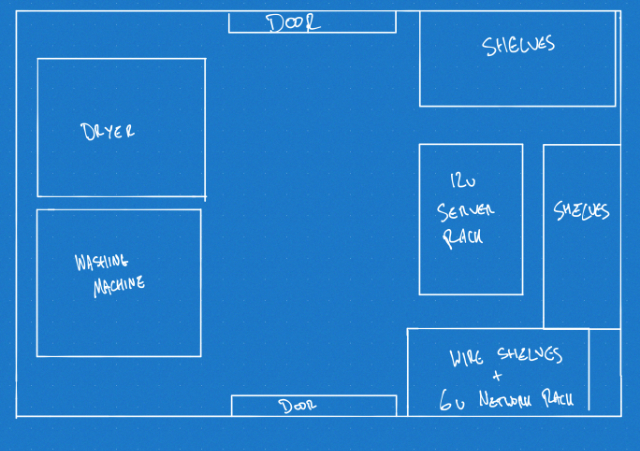 DOOR
SHELVES
DRYER
12U
SERVER
RACK
SHELVES
WASHING
MACHINE
WIRE SHELVES
+
6U NETWORK RACK
DOOR